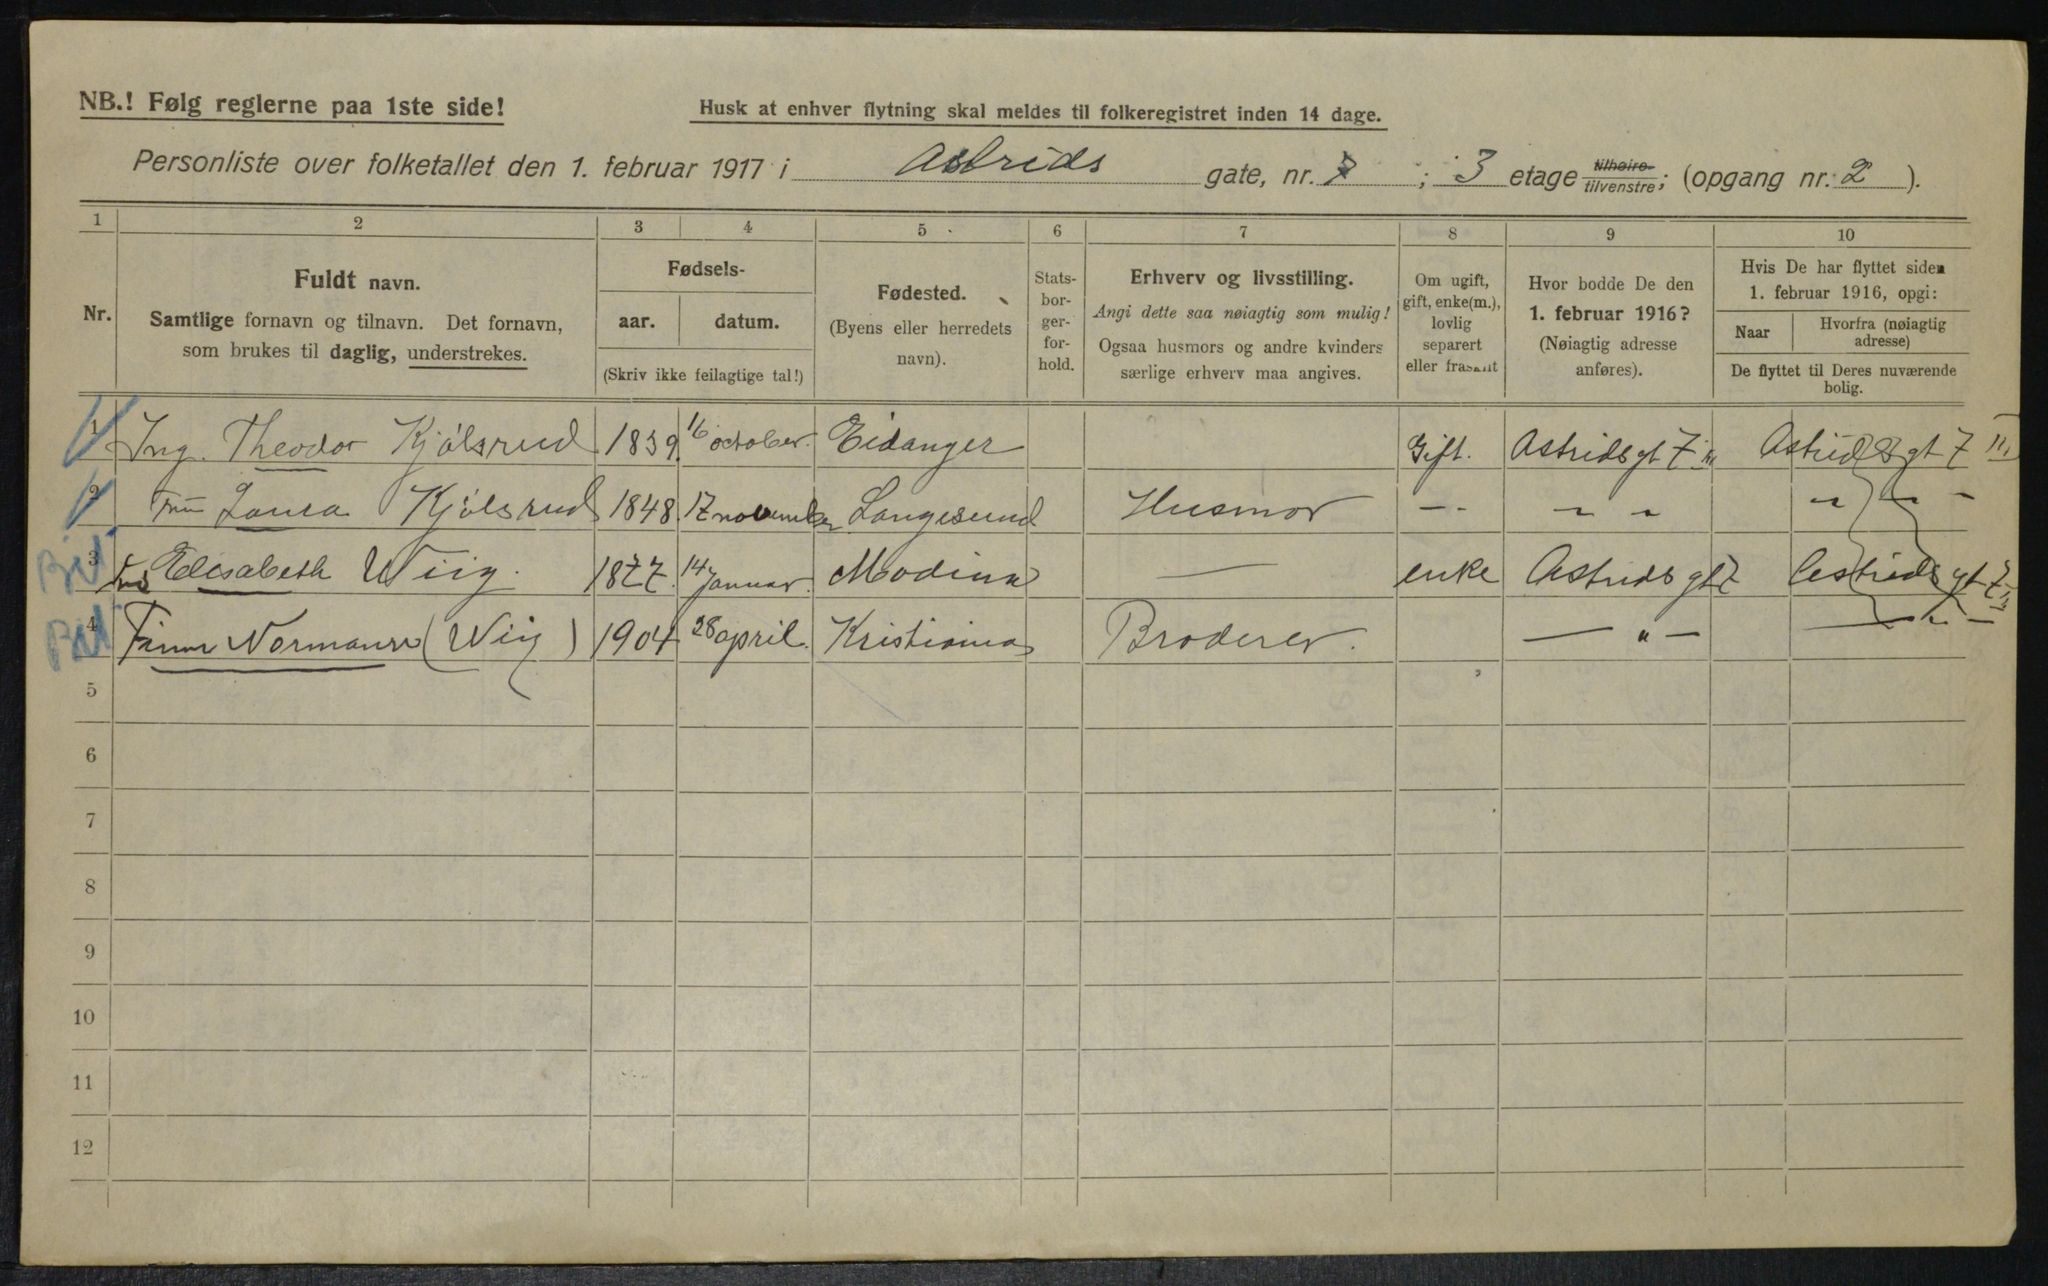 NB.! Følg reglerne paa 1ste side!
Husk at enhver flytning skal meldes til folkeregistret inden 14 dage.
Personliste over folketallet den 1. februar 1917 i Astrids gate, nr. 7 ; 3 etage tilhøire tilvenstre; (opgang nr. 2 ).
1 2 3 4 5 6 7 8 9 10
Nr.
Fuldt navn.
Samtlige fornavn og tilnavn. Det fornavn,
som brukes til daglig, understrekes.
Fødsels-
aar. datum.
(Skriv ikke feilagtige tal!)
Fødested.
(Byens eller herredets
navn).
Stats-
bor-
ger-
for-
hold.
Erhverv og livsstilling.
Angi dette saa nøiagtig som mulig!
Ogsaa husmors og andre kvinders
særlige erhverv maa angives.
Om ugift,
gift, enke(m.),
lovlig
separert
eller fraskilt
Hvor bodde De den
1. februar 1916?
(Nøiagtig adresse
anføres).
Hvis De har flyttet siden
1. februar 1916, opgi:
Naar Hvorfra (nøiagtig
adresse)
De flyttet til Deres nuværende
bolig.
1 Ing. Theodor Kjölsrud 1839 16 october. Eidanger Gift. Astridsgt 7 III Astridsgt 7 III
2 Fru Laura Kjölsrud 1848 17 november Langesund Husmor - - - - - - -
3 Elisabeth Wiig. 1877. 14 Januar. Modum — enke Astridsgt 7 Astrids gt 7 III
4 Finn Normann (Wiig) 1904 28 april. Kristiania Broderer. — " — — " —
5
6
7
8
9
10
11
12